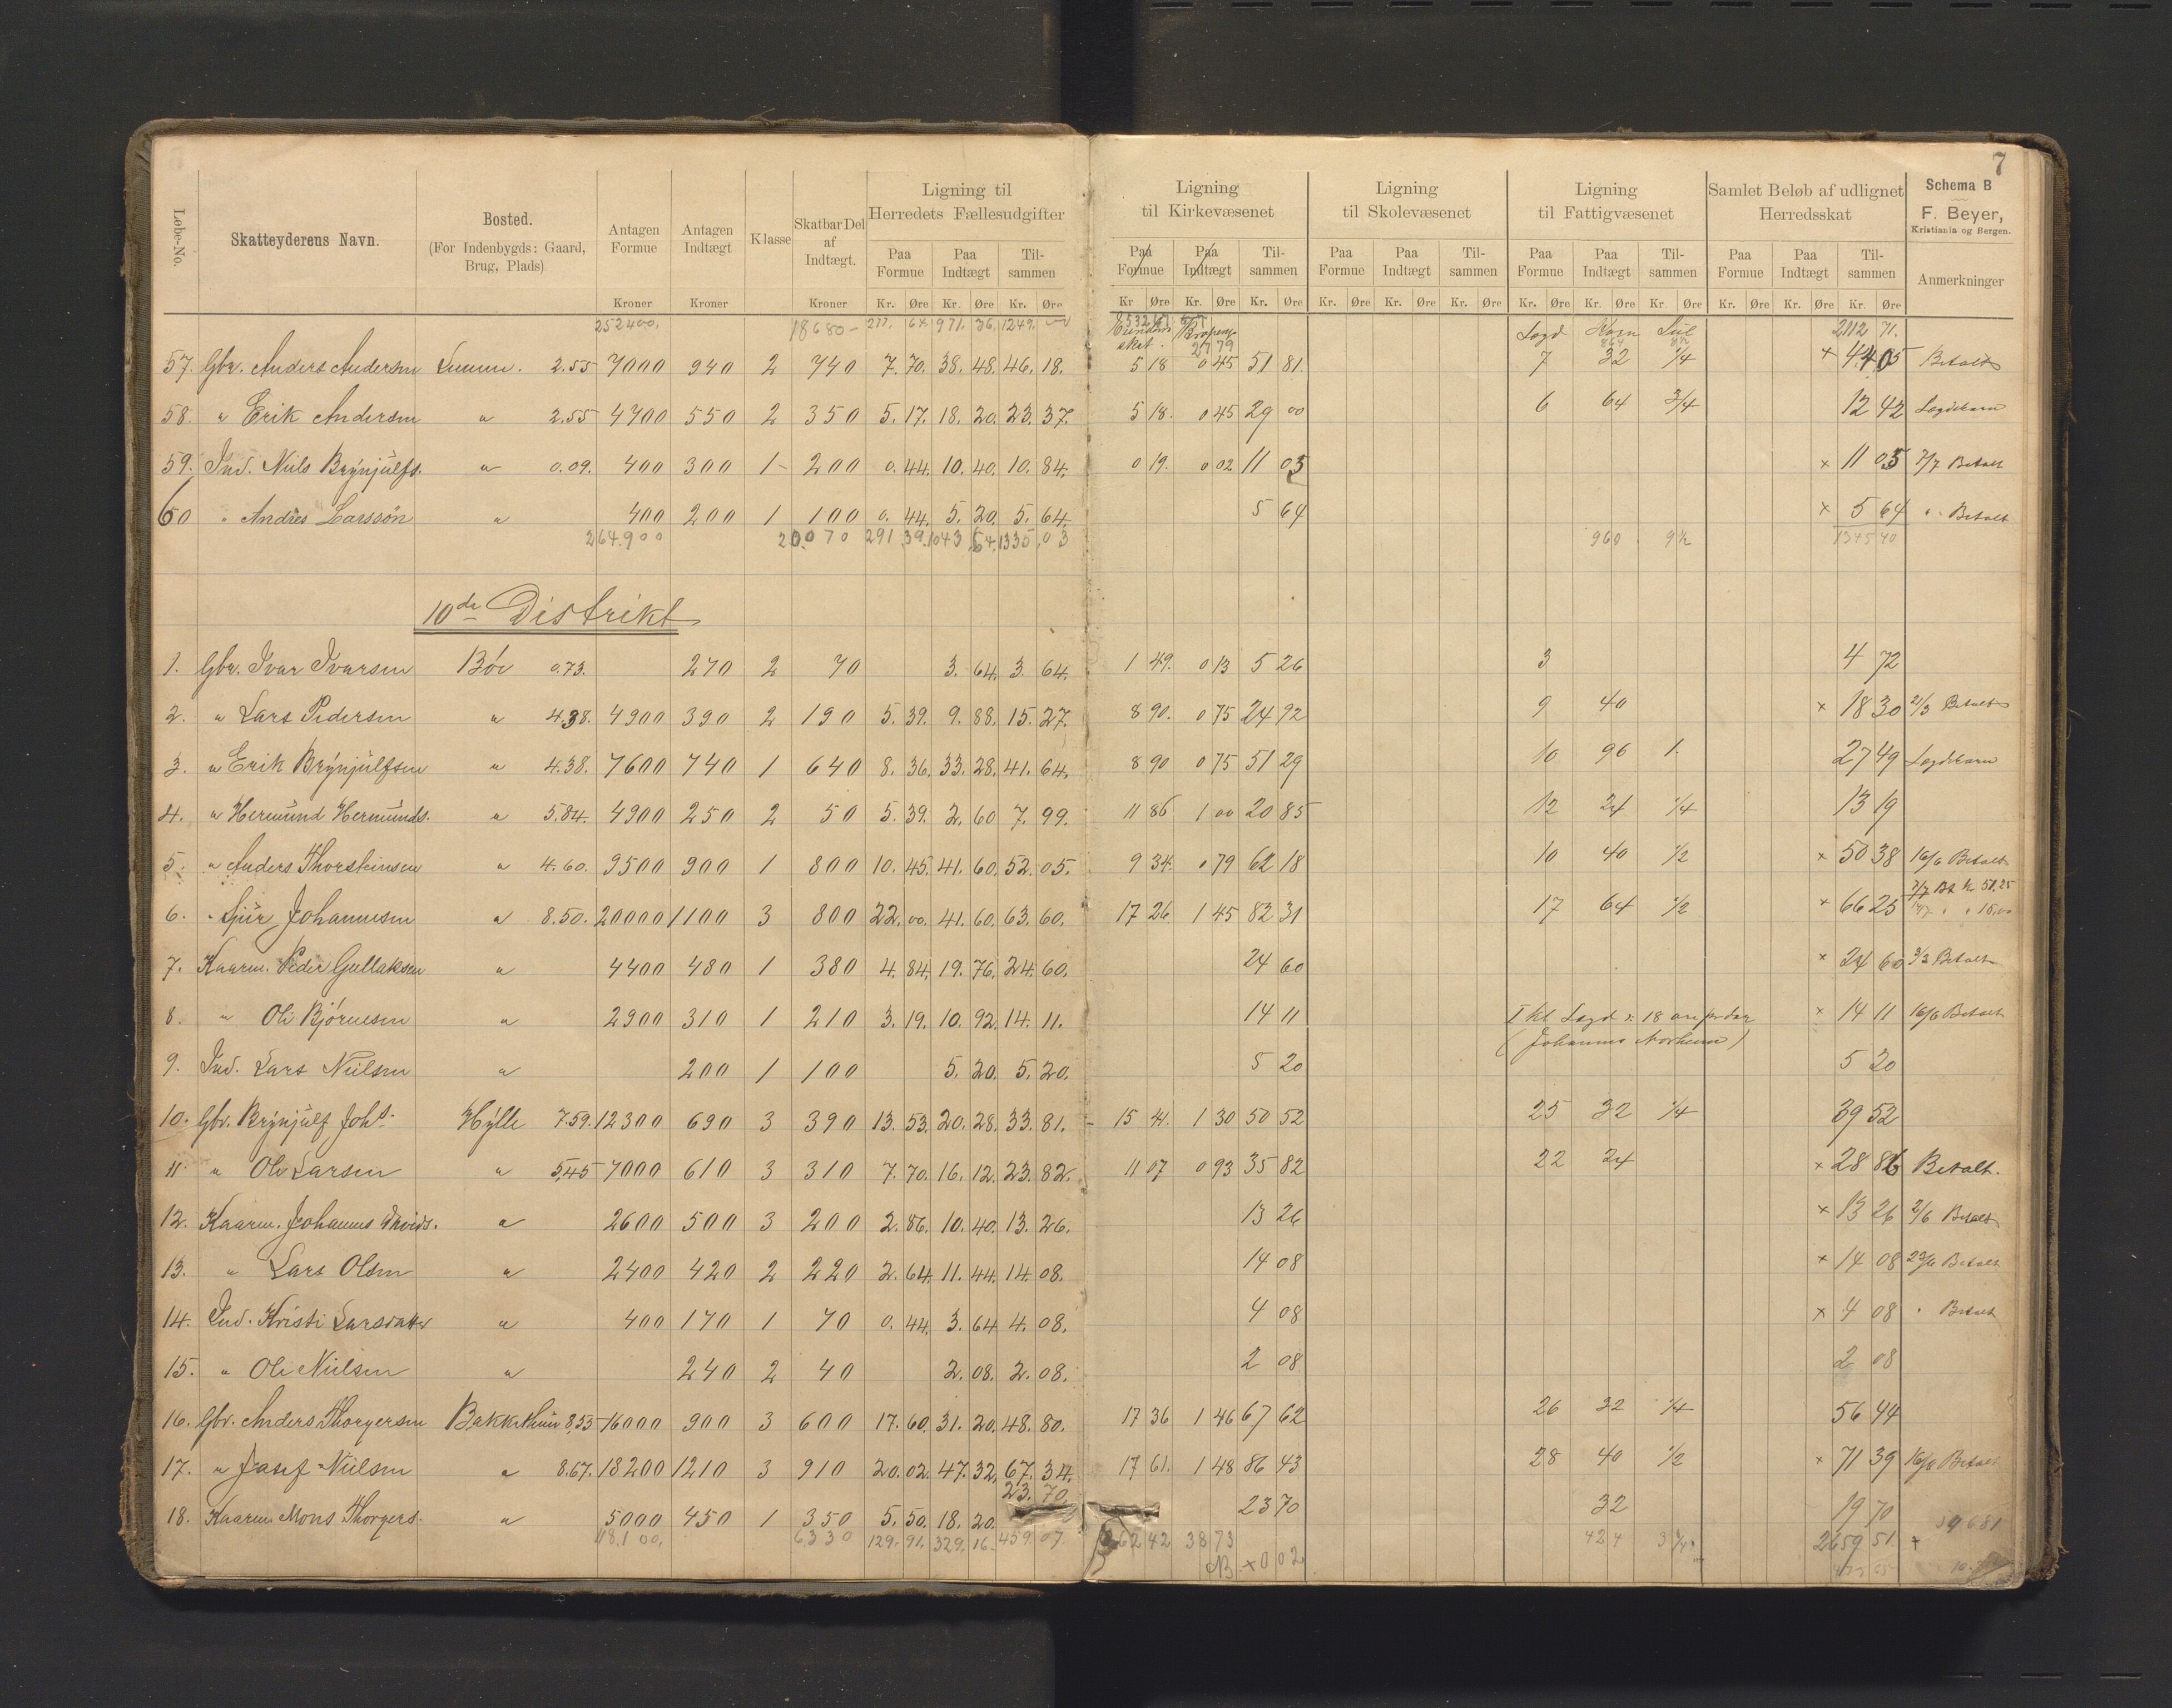 7
Løbe-No. Skatteyderens Navn. Bosted. (For Indenbygds: Gaard, Brug, Plads) Antagen Formue Antagen Indtægt Klasse Skatbar Del af Indtægt. Ligning til Herredets Fællesudgifter Ligning til Kirkevæsenet Ligning til Skolevæsenet Ligning til Fattigvæsenet Samlet Beløb af udlignet Herredsskat Schema B F. Beyer, Kristiania og Bergen. Anmerkninger
Paa Formue Paa Indtægt Tilsammen Paa Formue Paa Indtægt Tilsammen Paa Formue Paa Indtægt Tilsammen Paa Formue Paa Indtægt Tilsammen Paa Formue Paa Indtægt Tilsammen
Kroner Kroner Kroner Kr. Øre Kr. Øre Kr. Øre Kr Øre Kr. Øre Kr. Øre Kr. Øre Kr. Øre Kr. Øre Kr. Øre Kr. Øre Kr. Øre Kr. Øre Kr. Øre Kr. Øre
252400. 18680 277. 64 971. 36. 1249. skat. 2779 Legd Korn Suil 2112 71.
57. Gbr. Anders Andersen 2.55 7000 940 2 740 7. 70. 38. 48. 46. 18. 5 18 0 45 51 81. 7 32 1/4 × 44 05 Betalt
58. " Erik Andersen " 2.55 4700 550 2 350 5. 17. 18. 20. 23. 37. 5 18. 0 45 29 00 6 64 3/4 12 42 Legdebarn
59. Ind. Niels Brynjulfs. " 0.09. 400 300 1 200 0. 44. 10. 40. 10. 84. 0 19. 0 02 11 05 × 11 05 7/7 Betalt
60 " Andres Larssøn " 400 200 1 100 0. 44. 5. 20. 5. 64. 5 64 × 5 64 " Betalt
264.900 20.070 291.39. 1043.64. 1335.03 960 9½ 1345 40
10de Distrikt
1. Gbr. Ivar Ivarsen Böe 0.73. 270 2 70 3. 64. 3. 64. 1 49. 0 13 5 26 3 4 72
2. " Lars Pedersen " 4.38. 4900 390 2 190 5. 39. 9. 88. 15. 27. 8 90. 0 75 24 92 9 40 × 18 30 2/3 Betalt
3. " Erik Brynjulfsen " 4.38. 7600 740 1 640 8. 36. 33. 28. 41. 64. 8 90 0 75 51 29 10 96 1. 27 49 Legdebarn
4. " Hermund Hermunds. " 5.84. 4900 250 2 50 5. 39. 2. 60 7. 99. 11 86 1 00 20 85 12 24 1/4 13 19
5. " Anders Thorsteinsen " 4.60. 9500 900 1 800 10. 45. 41. 60. 52. 05. 9 34. 0 79 62 18 10 40 1/2 × 50 38 16/6 Betalt
6. " Sjur Johannesen " 8.50. 20000 1100 3 800 22. 00. 41. 60. 63. 60. 17 26 1 45 82 31 17 64 1/2 × 66 25 7/7 Bt kr 51.25
" " 15.00
7. Kaarm. Peder Gullaksen " 4400 480 1 380 4. 84. 19. 76. 24. 60. 24 60 × 24 60 3/3 Betalt
8. " Ole Bjørnesen " 2900 310 1 210 3. 19. 10. 92. 14. 11. 14 11 I kl Legd à 18 øre pr dag × 14 11 16/6 Betalt
(Johannes )
9. Ind. Lars Nielsen " 200 1 100 5. 20. 5. 20. 5 20 5 20
10. Gbr. Brynjulf Johs. Hylle 7.59. 12300 690 3 390 13. 53. 20. 28. 33. 81. 15 41. 1 30 50 52 25 32 1/4 39 52
11. " Ole Larsen " 5,45 7000 610 3 310 7. 70. 16. 12. 23. 82. 11 07 0 93 35 82 22 24 × 28 86 Betalt.
12. Kaarm. Johannes " 2600 500 3 200 2. 86. 10. 40. 13. 26. 13 26 × 13 26 2/6 Betalt
13. " Lars Olsen " 2400 420 2 220 2. 64. 11. 44. 14. 08. 14 08 × 14 08 23/6 Betalt
14. Ind. Kristi Larsdatr " 400 170 1 70 0. 44. 3. 64 4. 08. 4 08 × 4 08 " Betalt
15. " Ole Nielsen " 240 2 40 2. 08. 2. 08. 2 08 2 08
16. Gbr. Anders Thorgersen Bakkethun 8,55 16000 900 3 600 17. 60. 31. 20. 48. 80. 17 36 1 46 67 62 26 32 1/4 56 44
17. " Josef Nielsen " 8.67. 18200 1210 3 910 20. 02. 47. 32. 67. 34. 17 61. 1 48 86 43 28 40 1/2 × 71 39 16/6 Betalt
18. Kaarm. Mons Thorgers. " 5000 450 1 350 5. 50. 18. 20. 23. 70 23 70 32 19 70
118.100. 6330 129. 91. 329. 16. 459. 07. 62 42 38 73 424 3¾ 2659 51. +
× 0 02